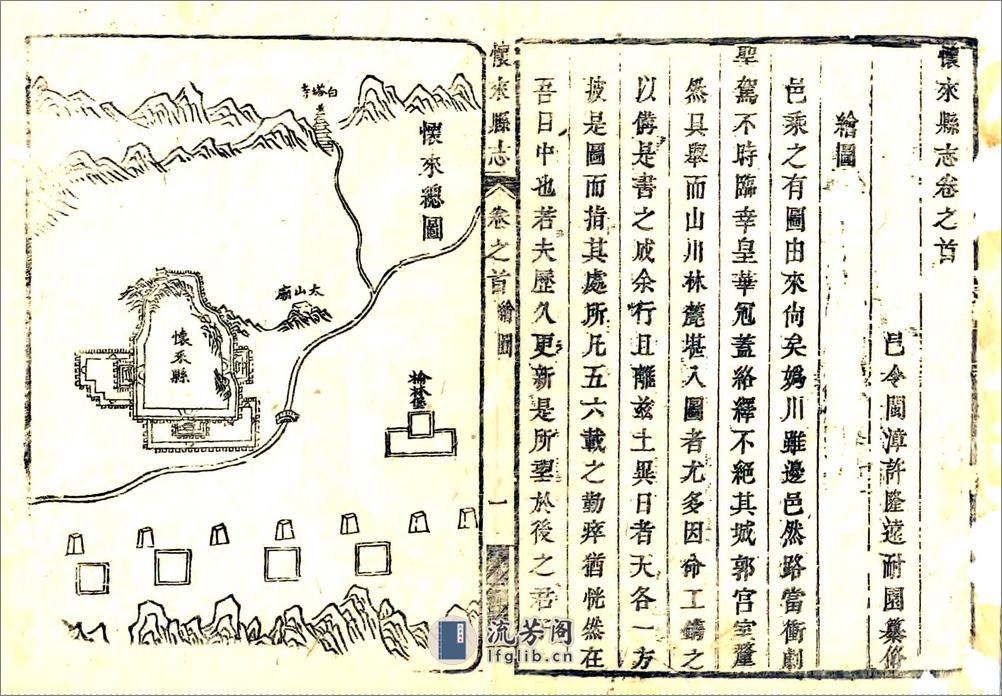 懷來縣志卷之首
邑令閩漳許隆遠耐園纂修
繪圖
邑乘之有圖由來尙矣媯川雖邊邑然路當衝劇
聖駕不時臨幸皇華冠蓋絡繹不絕其城郭官室釐
然具舉而山川林麓堪入圖者尤多因命工鑄之
以備是書之成余行且離兹土異日者天各一方
披是圖而指其處所凡五六載之勤瘁猶恍然在
吾日中也若夫歷久更新是所望於後之君
懷來縣志
卷之首
繪圖
一
懷來總圖
白塔寺
太山廟
懷來縣
榆林堡
流芳阁
lfglib.cn